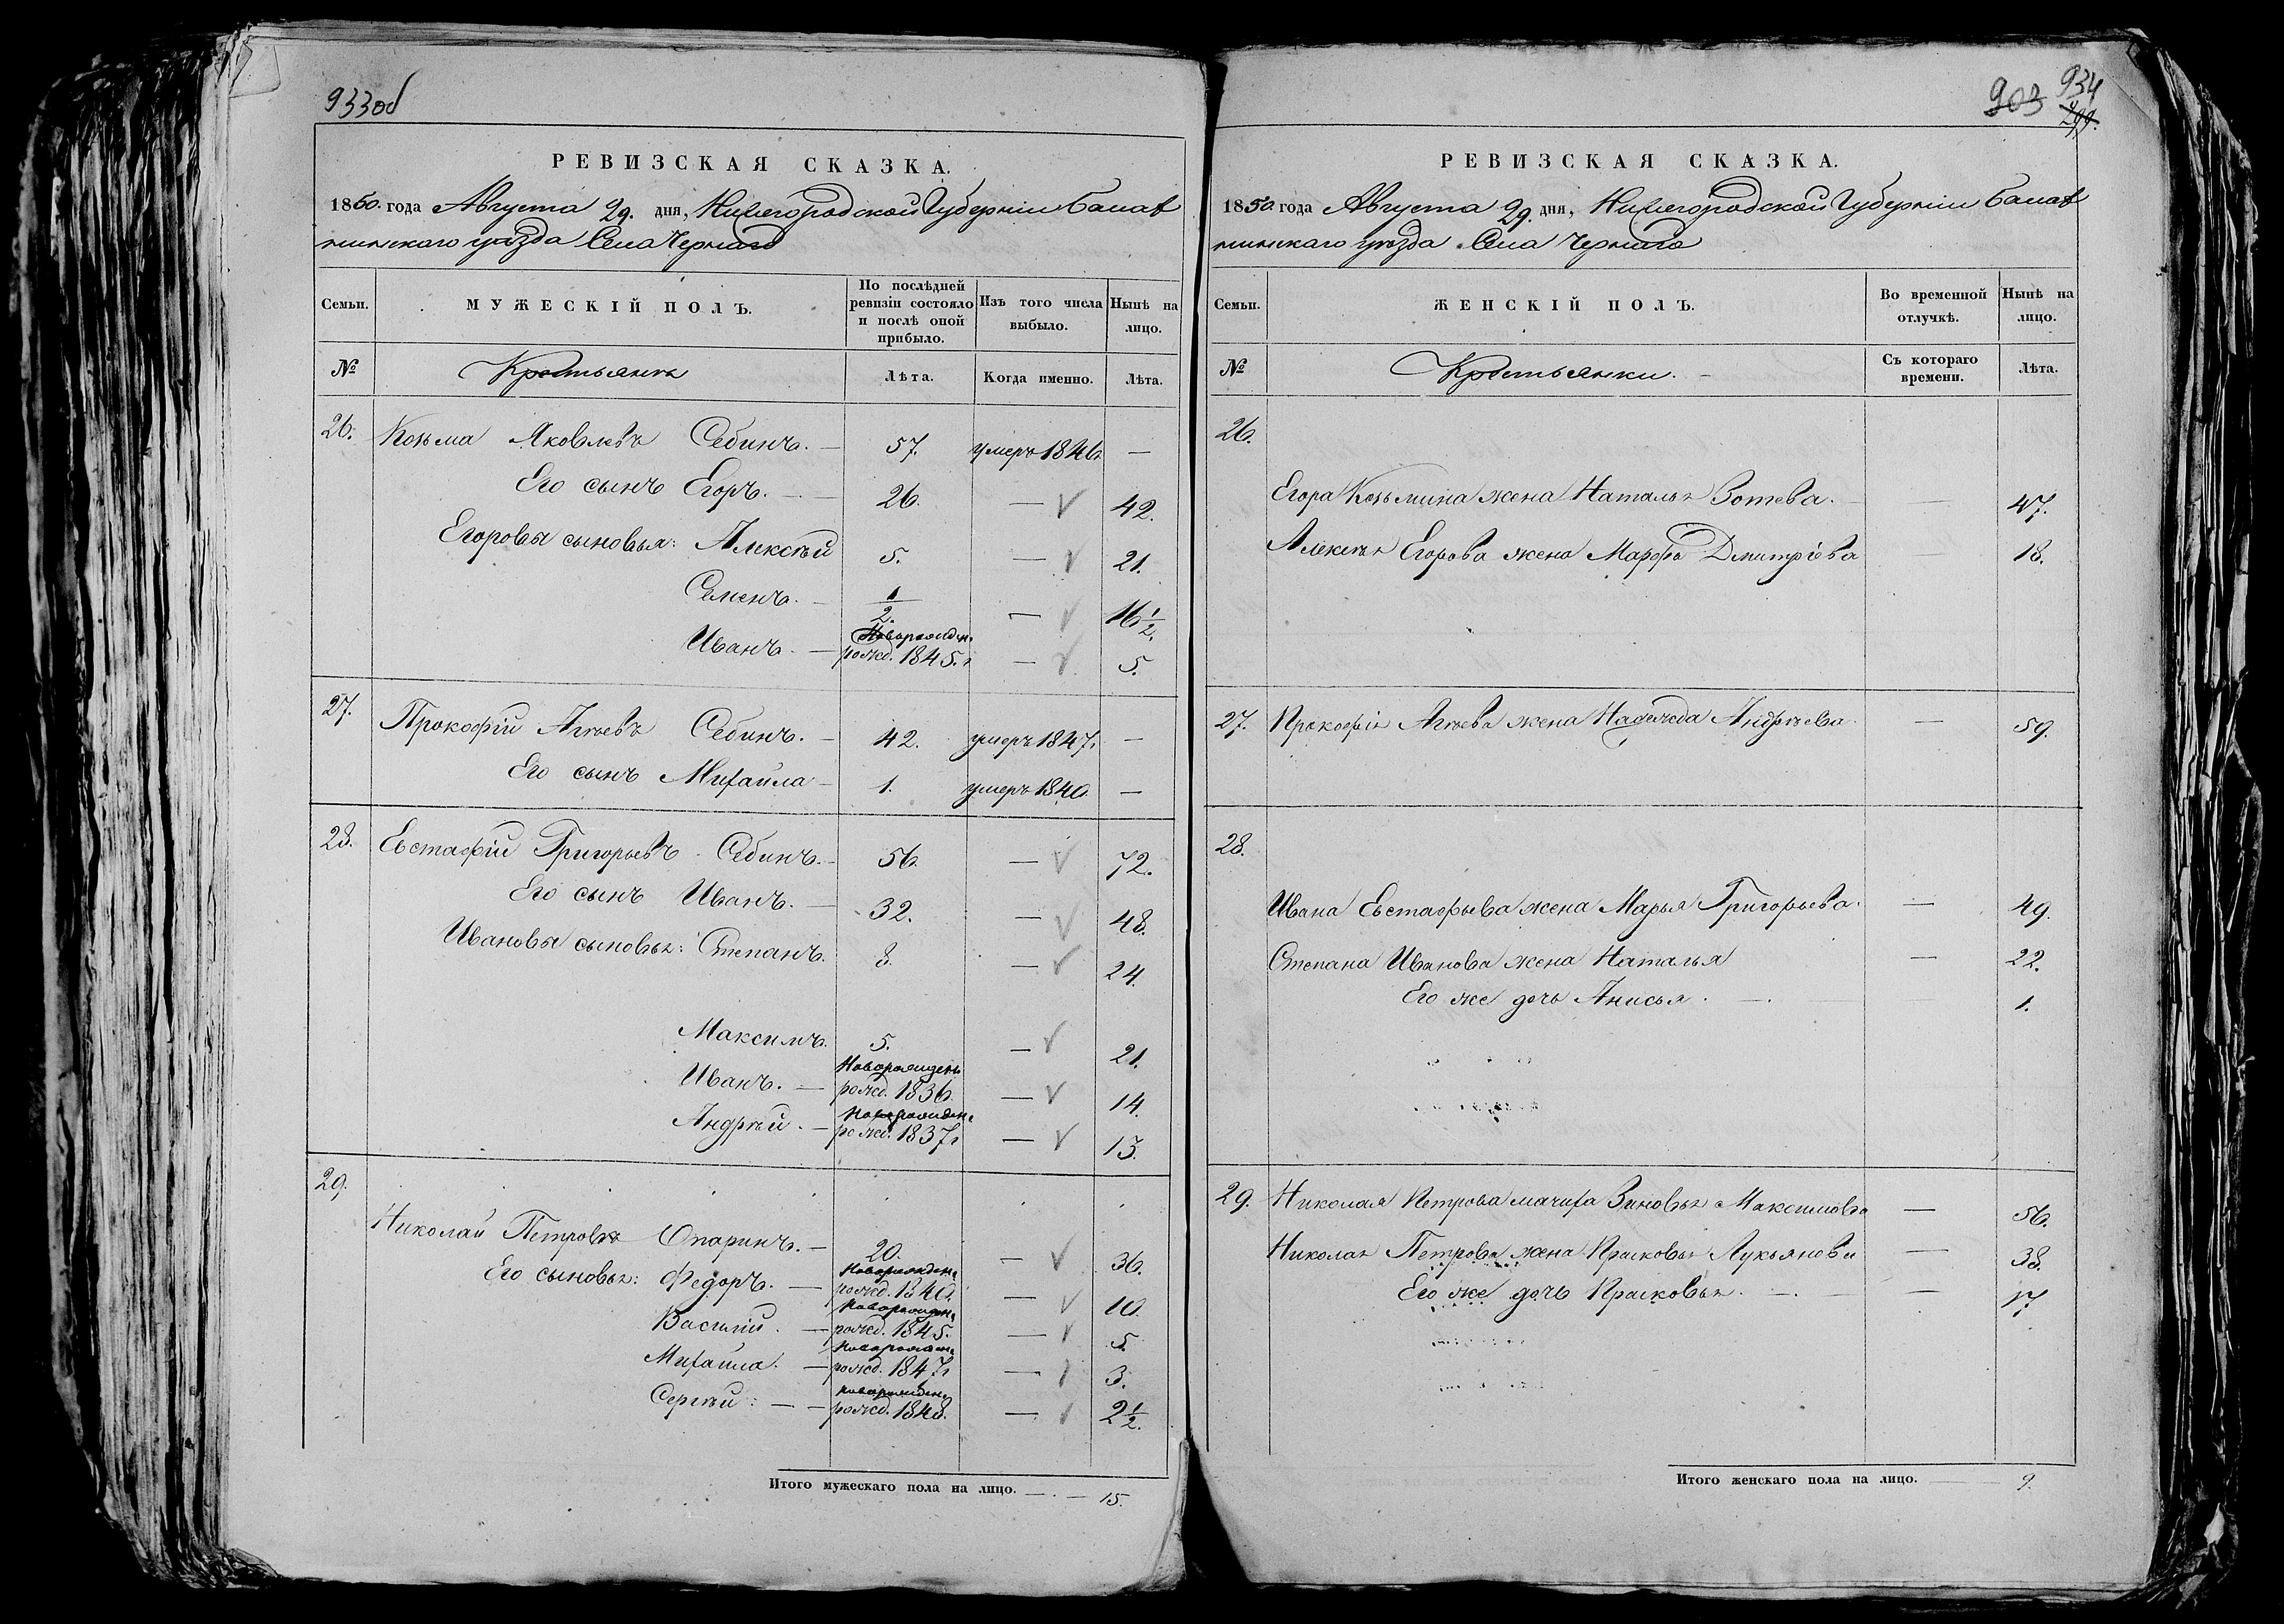 933об
РЕВИЗСКАЯ СКАЗКА.
1850. года Августа 29. дня, Нижегородской Губерніи Балах
нинскаго уезда Села Чернаго
Семьи. МУЖЕСКІЙ ПОЛЪ. По послѣдней ревизіи состояло и послѣ оной прибыло. Изъ того числа выбыло. Нынѣ на лицо.
№ Крестьяне Лѣта. Когда именно. Лѣта.
26. Козьма Яковлевъ Себинъ. — 57. умеръ 1846. —
Его сынъ Егоръ. — 26. — 42.
Егоровы сыновья: Алексѣй 5. — 21.
Семенъ. — 1/2. — 16 1/2.
Иванъ. — Новорожден. рожд. 1845. г — 5.
27. Прокофій Агѣевъ Себинъ. — 42. умеръ 1847. —
Его сынъ Михайла — 1. умеръ 1840. —
28. Евстафій Григорьевъ Себинъ. — 56. — 72.
Его сынъ Иванъ. — 32. — 48.
Ивановы сыновья: Степанъ. 8. — 24.
Максимъ. 5. — 21.
Иванъ. — Новорожденъ рожд. 1836. — 14.
Андрѣй. — Новорожден. рожд. 1837 г — 13.
29.
Николай Петровъ Опаринъ. — 20. — 36.
Его сыновья: Федоръ. — Новорожден. рожд. 1840. — 10.
Василій. — Новорожден. рожд. 1845. — 5.
Михайла. — Новорожден. рожд. 1847 г — 3.
Сергѣй: — — Новорожден. рожд. 1848. — 2 1/2.
Итого мужескаго пола на лицо. — 15.
903 934
799.
РЕВИЗСКАЯ СКАЗКА.
1850. года Августа 29. дня, Нижегородской Губерніи Балах
нинскаго уезда Села Чернаго
Семьи. ЖЕНСКІЙ ПОЛЪ. Во временной отлучкѣ. Нынѣ на лицо.
№ Крестьянки. Съ котораго времени. Лѣта.
26.
Егора Козьмина жена Наталья Зотева. — 47.
Алексѣя Егорова жена Марфа Дмитріева — 18.
27. Прокофія Агѣева жена Надежда Андрѣева — 59.
28.
Ивана Евстафьева жена Марья Григорьева. — 49.
Степана Иванова жена Наталья — 22.
Его же дочь Анисья. — 1.
29. Николая Петрова мачиха Зиновья Максимова — 56.
Николая Петрова жена Прасковья Лукьянова — 38.
Его же дочь Прасковья. — — 17
Итого женскаго пола на лицо. — 9.